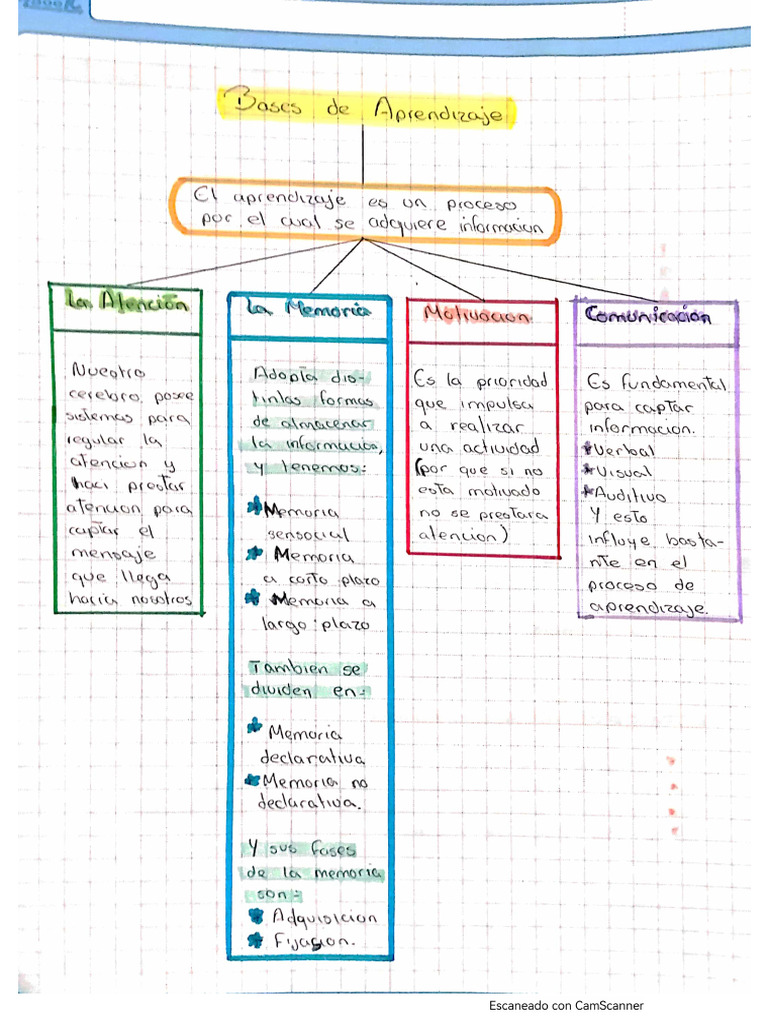 Bases de Aprendizaje
El aprendizaje es un proceso
por el cual se adquiere informacion
La Atención
Nuestro
cerebro, posee
sistemas para
regular la
atencion y
haci prestar
atencion para
captar el
mensaje
que llega
hacia nosotros
La Memoria
Adopta dis-
tintas formas
de almacenar
la informacion,
y tenemos:
*Memoria
sensocial
* Memoria
a corto plazo
* Memoria a
largo plazo
Tambien se
dividen en:
* Memoria
declarativa
*Memoria no
declarativa.
Y sus fases
de la memoria
son:
* Adquisicion
* Fijacion.
Motivacion
Es la prioridad
que impulsa
a realizar
una actividad
(por que si no
esta motivado
no se prestara
atencion)
Comunicacion
Es fundamental
para captar
informacion.
*Verbal
*Visual
*Auditivo
Y esto
influye basta-
nte en el
proceso de
aprendizaje.
Escaneado con CamScanner